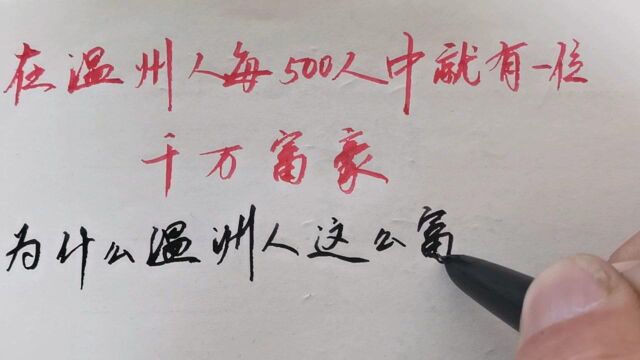 在温州人每500人中就有一位
千万富豪
为什么温州人这么富